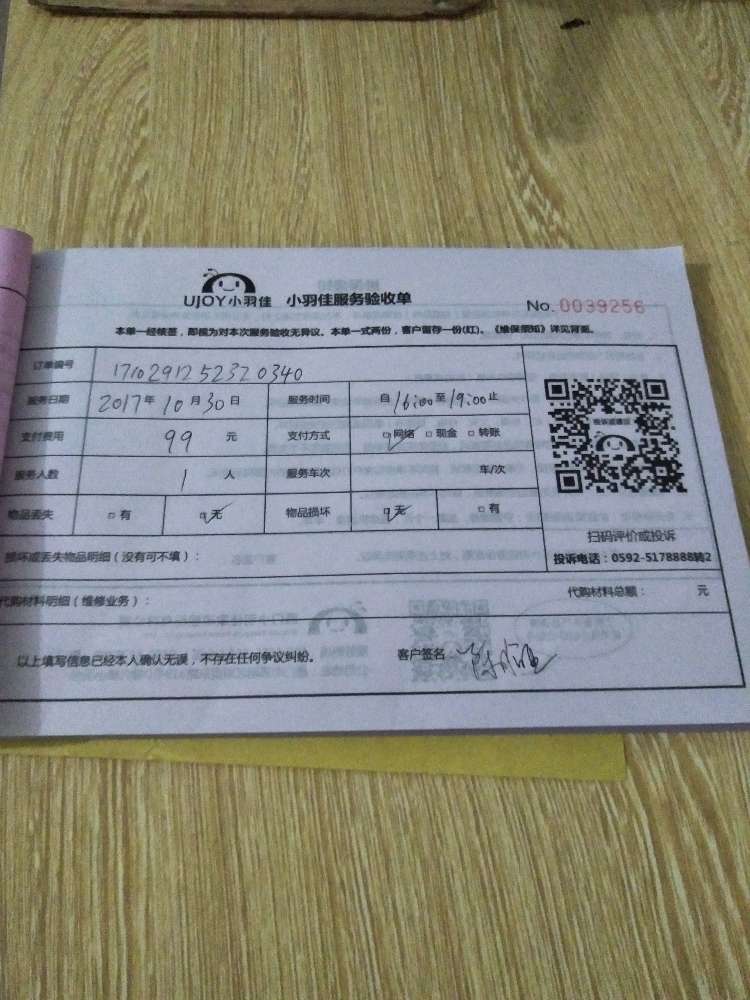 UJOY小羽佳 小羽佳服务验收单
No. 0039256
本单一经核签，即视为对本次服务验收无异议。本单一式两份，客户留存一份(红)。《维保须知》详见背面。
订单编号 17102912523720340
服务日期 2017年10月30日 服务时间 自16:00至19:00止
支付费用 99 元 支付方式 网络 现金 转账
服务人数 1 人 服务车次 车/次
物品丢失 有 无 物品损坏 无 有
扫码评价或投诉
损坏或丢失物品明细（没有可不填）： 投诉电话：0592-5178888转2
代购材料明细（维修业务）： 代购材料总额： 元
以上填写信息已经本人确认无误，不存在任何争议纠纷。 客户签名